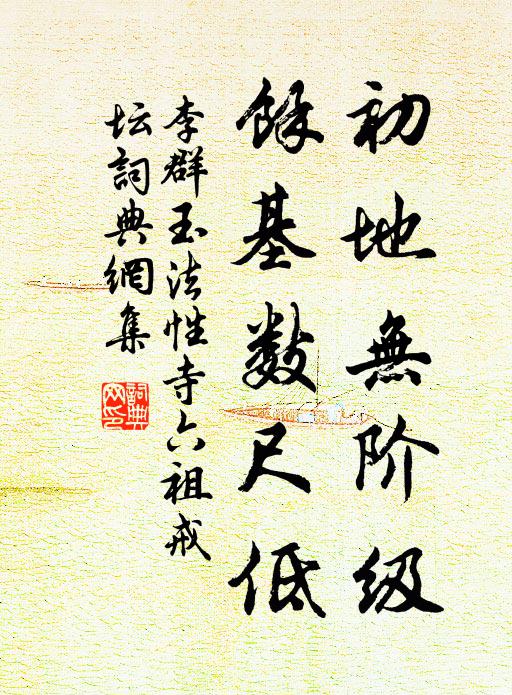 初地無阶级
餘基数尺低
李群玉法性寺六祖戒
坛詞典網集
詞典
网印